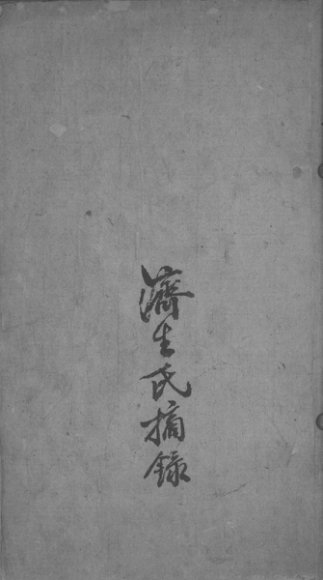 濟生氏摘錄